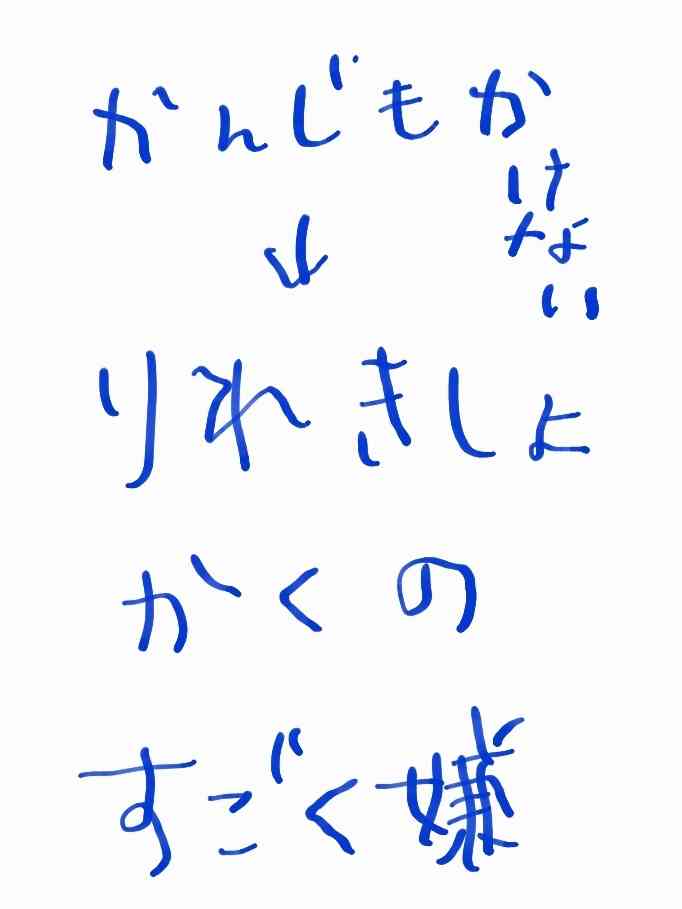 かんじもかけない
↓
りれきしょ
かくの
すごく嫌